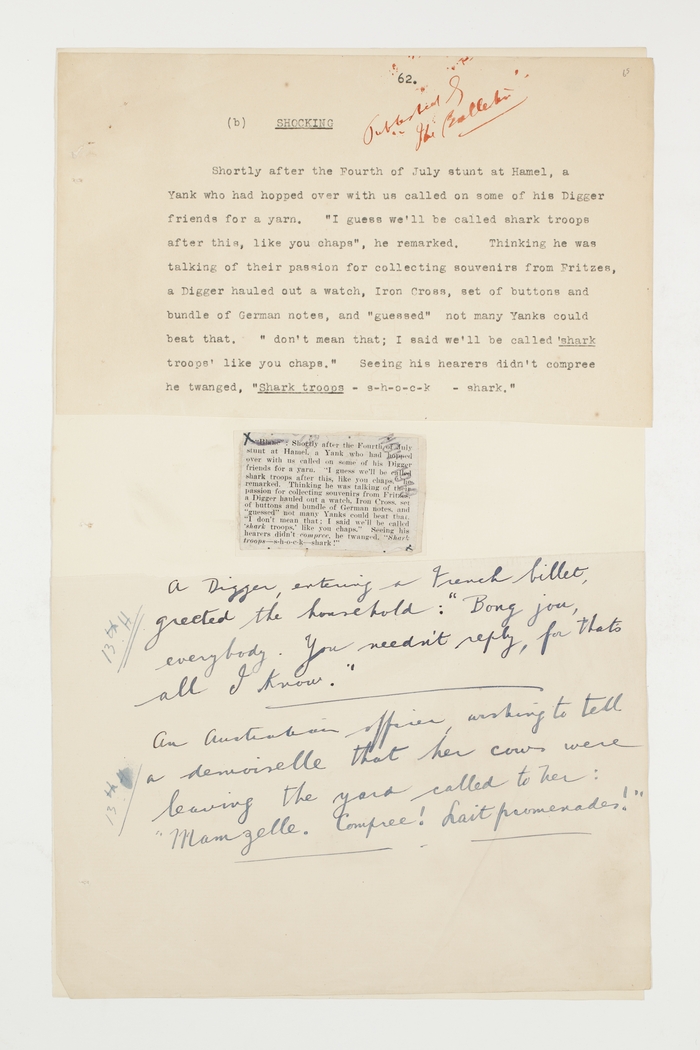 62.
Published by
The Bulletin
(b) SHOCKING
Shortly after the Fourth of July stunt at Hamel, a
Yank who had hopped over with us called on some of his Digger
friends for a yarn. "I guess we'll be called shark troops
after this, like you chaps", he remarked. Thinking he was
talking of their passion for collecting souvenirs from Fritzes,
a Digger hauled out a watch, Iron Cross, set of buttons and
bundle of German notes, and "guessed" not many Yanks could
beat that. " don't mean that; I said we'll be called 'shark
troops' like you chaps." Seeing his hearers didn't compree
he twanged, "Shark troops - s-h-o-c-k - shark."
: Shortly after the Fourth of July
stunt at Hamel, a Yank who had hopped
over with us called on some of his Digger
friends for a yarn. "I guess we'll be called
shark troops after this, like you chaps,"
remarked. Thinking he was talking of their
passion for collecting souvenirs from Fritzes,
a Digger hauled out a watch, Iron Cross, set
of buttons and bundle of German notes, and
"guessed" not many Yanks could beat that.
"I don't mean that; I said we'll be called
'shark troops,' like you chaps." Seeing his
hearers didn't compree, he twanged, "Shark
troops—s-h-o-c-k—shark!"
A Digger, entering a French billet,
greeted the household: "Bong jou,
everybody. You needn't reply, for thats
all I know."
An Australian officer, wishing to tell
a demoiselle that her cows were
leaving the yard called to her:
"Mamzelle. Compree! Lait promenades!"